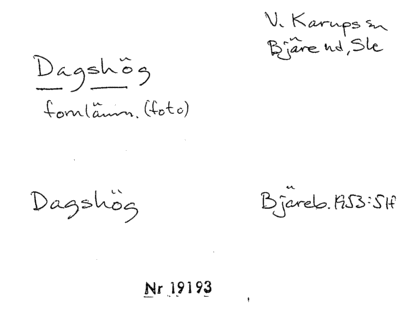 V. Karups sn
Bjäre hd, Sk
Dagshög
fornlämn. (foto)
Dagshög
Bjäreb. 1953: 51f
Nr 19193